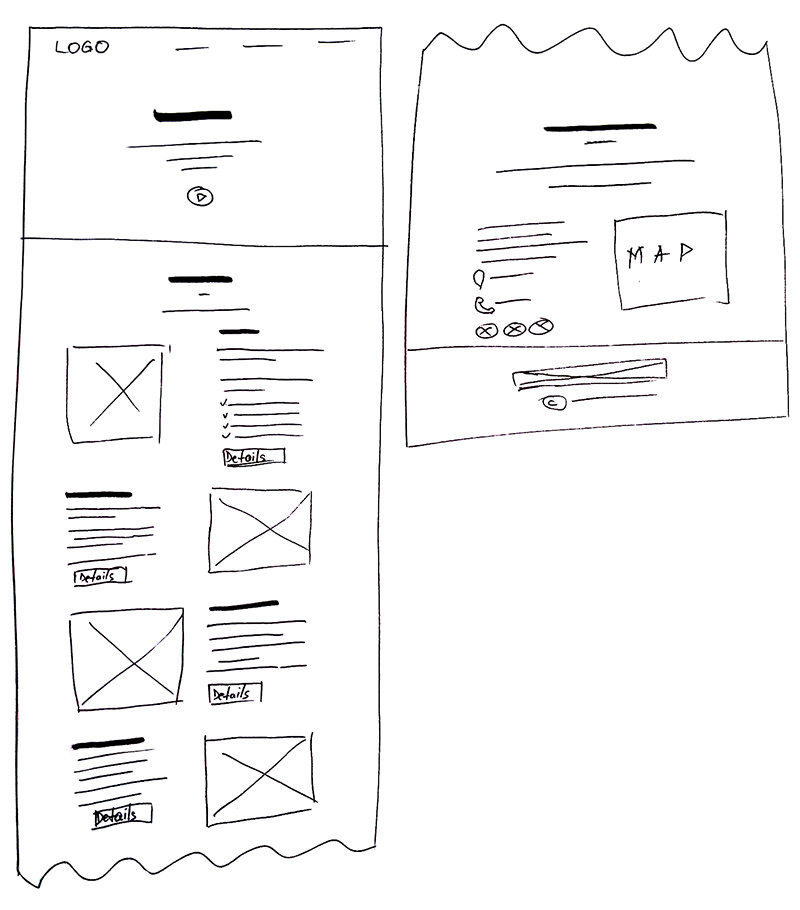 LOGO
Details
Details
Details
Details
MAP
C